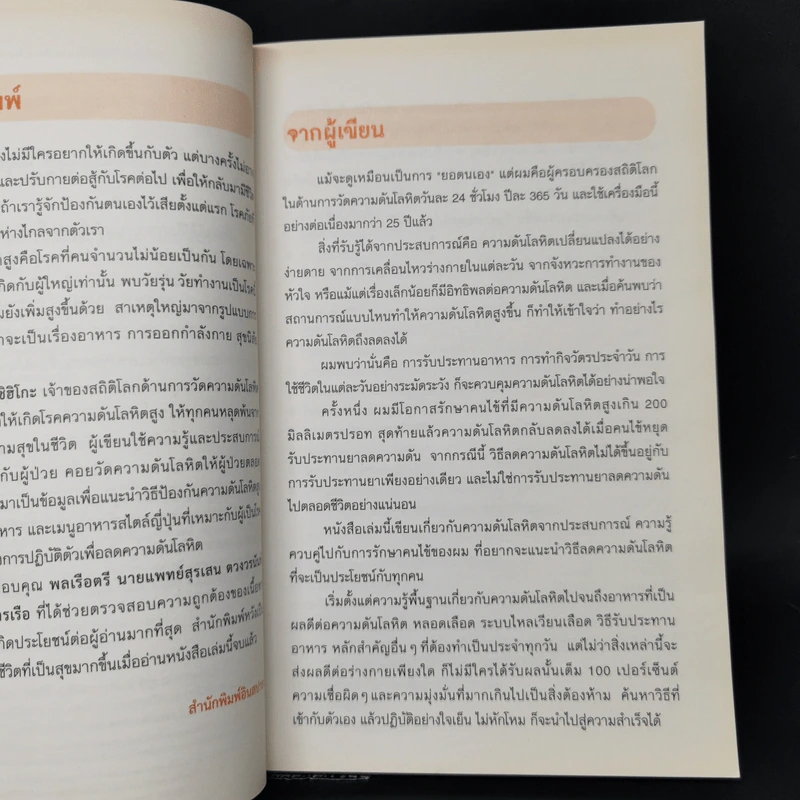 พ์
งไม่มีใครอยากให้เกิดขึ้นกับตัว แต่บางครั้งไม่
และปรับกายต่อสู้กับโรคต่อไป เพื่อให้กลับมามีชีวิต
ถ้าเรารู้จักป้องกันตนเองไว้เสียตั้งแต่แรก
ห่างไกลจากตัวเรา
สูงคือโรคที่คนจำนวนไม่น้อยเป็นกัน โดยเฉพาะ
กิดกับผู้ใหญ่เท่านั้น พบวัยรุ่น วัยทำงานเป็นโรค
มยังเพิ่มสูงขึ้นด้วย สาเหตุใหญ่มาจากรูปแบบการ
จะเป็นเรื่องอาหาร การออกกำลังกาย
ชิฮิโกะ เจ้าของสถิติโลกด้านการวัดความดันโลหิต
ให้เกิดโรคความดันโลหิตสูง ให้ทุกคนหลุดพ้นจาก
ามสุขในชีวิต ผู้เขียนใช้ความรู้และประสบการณ์
กับผู้ป่วย คอยวัดความดันโลหิตให้ผู้ป่วยตลอด
มาเป็นข้อมูลเพื่อแนะนำวิธีป้องกันความดันโลหิตสูง
หาร และเมนูอาหารสไตล์ญี่ปุ่นที่เหมาะกับผู้เป็นโรค
งการปฏิบัติตัวเพื่อลดความดันโลหิต
อบคุณ พลเรือตรี นายแพทย์สุรเสน
ารเรือ ที่ได้ช่วยตรวจสอบความถูกต้องของเนื้อหา
กิดประโยชน์ต่อผู้อ่านมากที่สุด สำนักพิมพ์หวังเป็น
ชีวิตที่เป็นสุขมากขึ้นเมื่ออ่านหนังสือเล่มนี้จบแล้ว
สำนักพิมพ์
จากผู้เขียน
แม้จะดูเหมือนเป็นการ "ยอตนเอง" แต่ผมคือผู้ครอบครองสถิติโลก
ในด้านการวัดความดันโลหิตวันละ 24 ชั่วโมง ปีละ 365 วัน และใช้เครื่องมือนี้
อย่างต่อเนื่องมากว่า 25 ปีแล้ว
สิ่งที่รับรู้ได้จากประสบการณ์คือ ความดันโลหิตเปลี่ยนแปลงได้อย่าง
ง่ายดาย จากการเคลื่อนไหวร่างกายในแต่ละวัน จากจังหวะการทำงานของ
หัวใจ หรือแม้แต่เรื่องเล็กน้อยก็มีอิทธิพลต่อความดันโลหิต และเมื่อค้นพบว่า
สถานการณ์แบบไหนทำให้ความดันโลหิตสูงขึ้น ก็ทำให้เข้าใจว่า ทำอย่างไร
ความดันโลหิตถึงลดลงได้
ผมพบว่านั่นคือ การรับประทานอาหาร การทำกิจวัตรประจำวัน การ
ใช้ชีวิตในแต่ละวันอย่างระมัดระวัง ก็จะควบคุมความดันโลหิตได้อย่างน่าพอใจ
ครั้งหนึ่ง ผมมีโอกาสรักษาคนไข้ที่มีความดันโลหิตสูงเกิน 200
มิลลิเมตรปรอท สุดท้ายแล้วความดันโลหิตกลับลดลงได้เมื่อคนไข้หยุด
รับประทานยาลดความดัน จากกรณีนี้ วิธีลดความดันโลหิตไม่ได้ขึ้นอยู่กับ
การรับประทานยาเพียงอย่างเดียว และไม่ใช่การรับประทานยาลดความดัน
ไปตลอดชีวิตอย่างแน่นอน
หนังสือเล่มนี้เขียนเกี่ยวกับความดันโลหิตจากประสบการณ์ ความรู้
ควบคู่ไปกับการรักษาคนไข้ของผม ที่อยากจะแนะนำวิธีลดความดันโลหิต
ที่จะเป็นประโยชน์กับทุกคน
เริ่มตั้งแต่ความรู้พื้นฐานเกี่ยวกับความดันโลหิตไปจนถึงอาหารที่เป็น
ผลดีต่อความดันโลหิต หลอดเลือด ระบบไหลเวียนเลือด วิธีรับประทาน
อาหาร หลักสำคัญอื่น ๆ ที่ต้องทำเป็นประจำทุกวัน แต่ไม่ว่าสิ่งเหล่านี้จะ
ส่งผลดีต่อร่างกายเพียงใด ก็ไม่มีใครได้รับผลนั้นเต็ม 100 เปอร์เซ็นต์
ความเชื่อผิด ๆ และความมุ่งมั่นที่มากเกินไปเป็นสิ่งต้องห้าม ค้นหาวิธีที่
เข้ากับตัวเอง แล้วปฏิบัติอย่างใจเย็น ไม่หักโหม ก็จะนำไปสู่ความสำเร็จได้